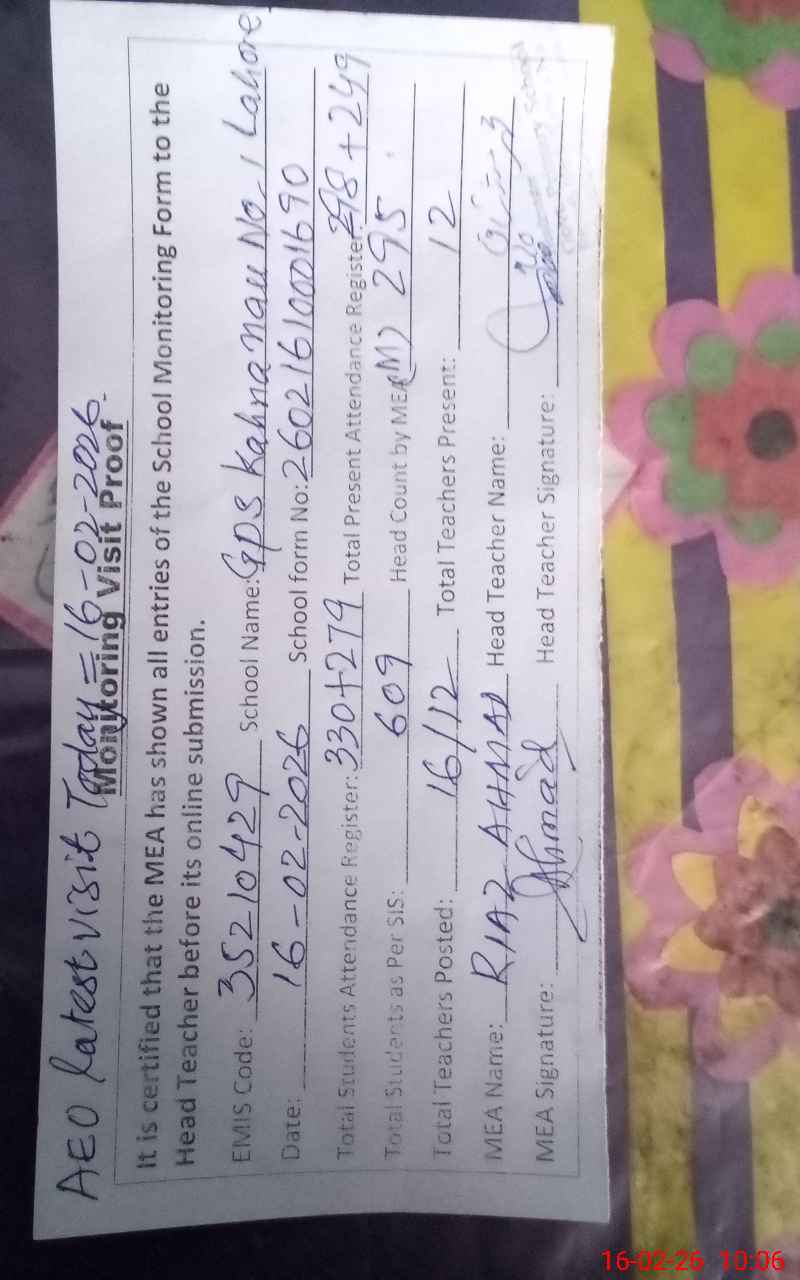 AEO latest visit Today = 16-02-2026.
Monitoring Visit Proof
It is certified that the MEA has shown all entries of the School Monitoring Form to the
Head Teacher before its online submission.
EMIS Code: 35210429 School Name: GPS Kahna nau No. 1 Lahore
Date: 16-02-2026 School form No: 260216100001690
Total Students Attendance Register: 330+279 Total Present Attendance Register: 298+249
Total Students as Per SIS: 609 Head Count by MEA (M) 295
Total Teachers Posted: 16/12 Total Teachers Present: 12
MEA Name: RIAZ AHMAD Head Teacher Name:
MEA Signature: Ahmad Head Teacher Signature:
16-02-26 10:06